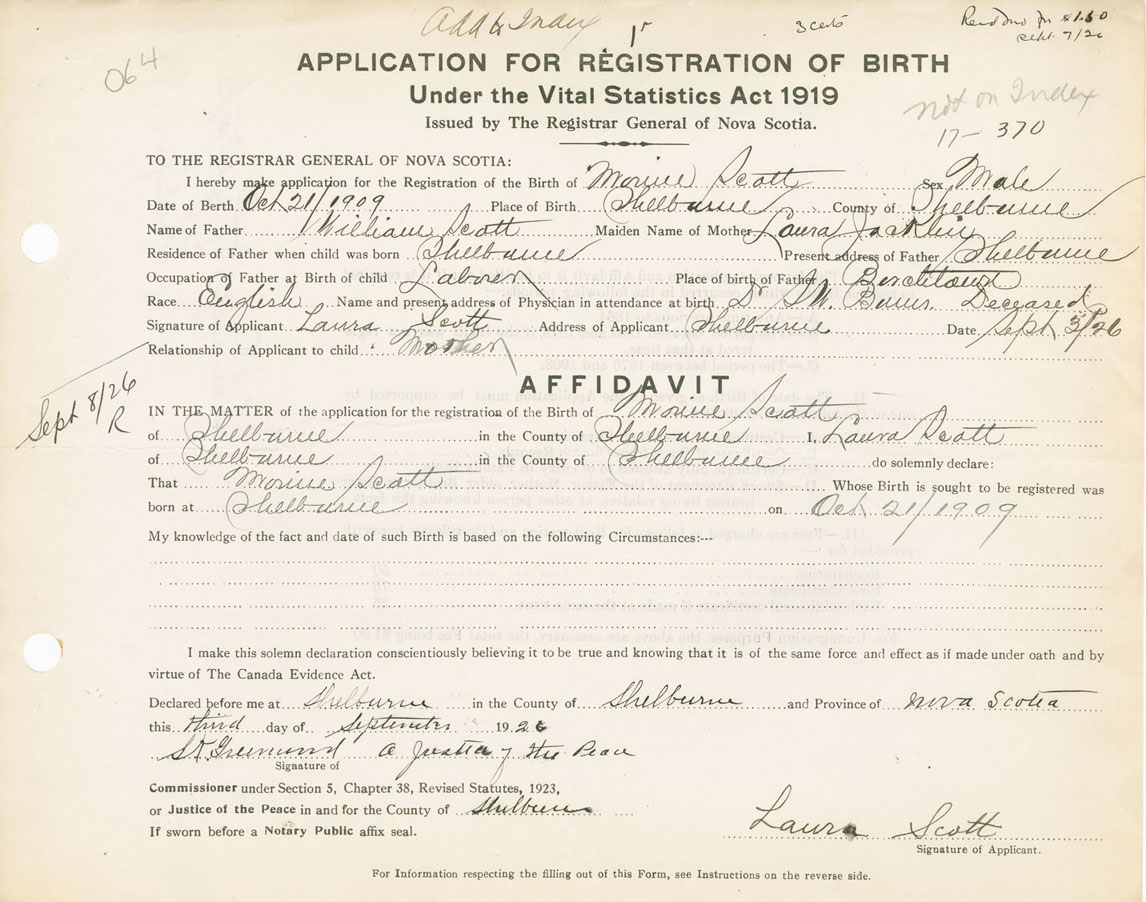 Add to Index
3 certs
Sept. 7/26
064
APPLICATION FOR REGISTRATION OF BIRTH
Under the Vital Statistics Act 1919
Issued by The Registrar General of Nova Scotia.
Not on Index
17 - 370
TO THE REGISTRAR GENERAL OF NOVA SCOTIA:
I hereby make application for the Registration of the Birth of Morine Scott Sex Male
Date of Berth Oct 21/1909 Place of Birth Shelburne County of Shelburne
Name of Father William Scott Maiden Name of Mother Laura Jacklin
Residence of Father when child was born Shelburne Present address of Father Shelburne
Occupation of Father at Birth of child Laborer Place of birth of Father Birchtown
Race. English Name and present address of Physician in attendance at birth Dr. Deceased
Signature of Applicant Laura Scott Address of Applicant Shelburne Date Sept 3/26
Relationship of Applicant to child Mother
Sept 8/26
R
AFFIDAVIT
IN THE MATTER of the application for the registration of the Birth of Morine Scott
of Shelburne in the County of Shelburne I, Laura Scott
of Shelburne in the County of Shelburne do solemnly declare:
That Morine Scott Whose Birth is sought to be registered was
born at Shelburne on Oct 21/1909
My knowledge of the fact and date of such Birth is based on the following Circumstances:---
I make this solemn declaration conscientiously believing it to be true and knowing that it is of the same force and effect as if made under oath and by
virtue of The Canada Evidence Act.
Declared before me at Shelburne in the County of Shelburne and Province of Nova Scotia
this third day of September 1926
A Justice of the Peace
Signature of
Commissioner under Section 5, Chapter 38, Revised Statutes, 1923,
or Justice of the Peace in and for the County of Shelburne
If sworn before a Notary Public affix seal.
Laura Scott
Signature of Applicant.
For Information respecting the filling out of this Form, see Instructions on the reverse side.